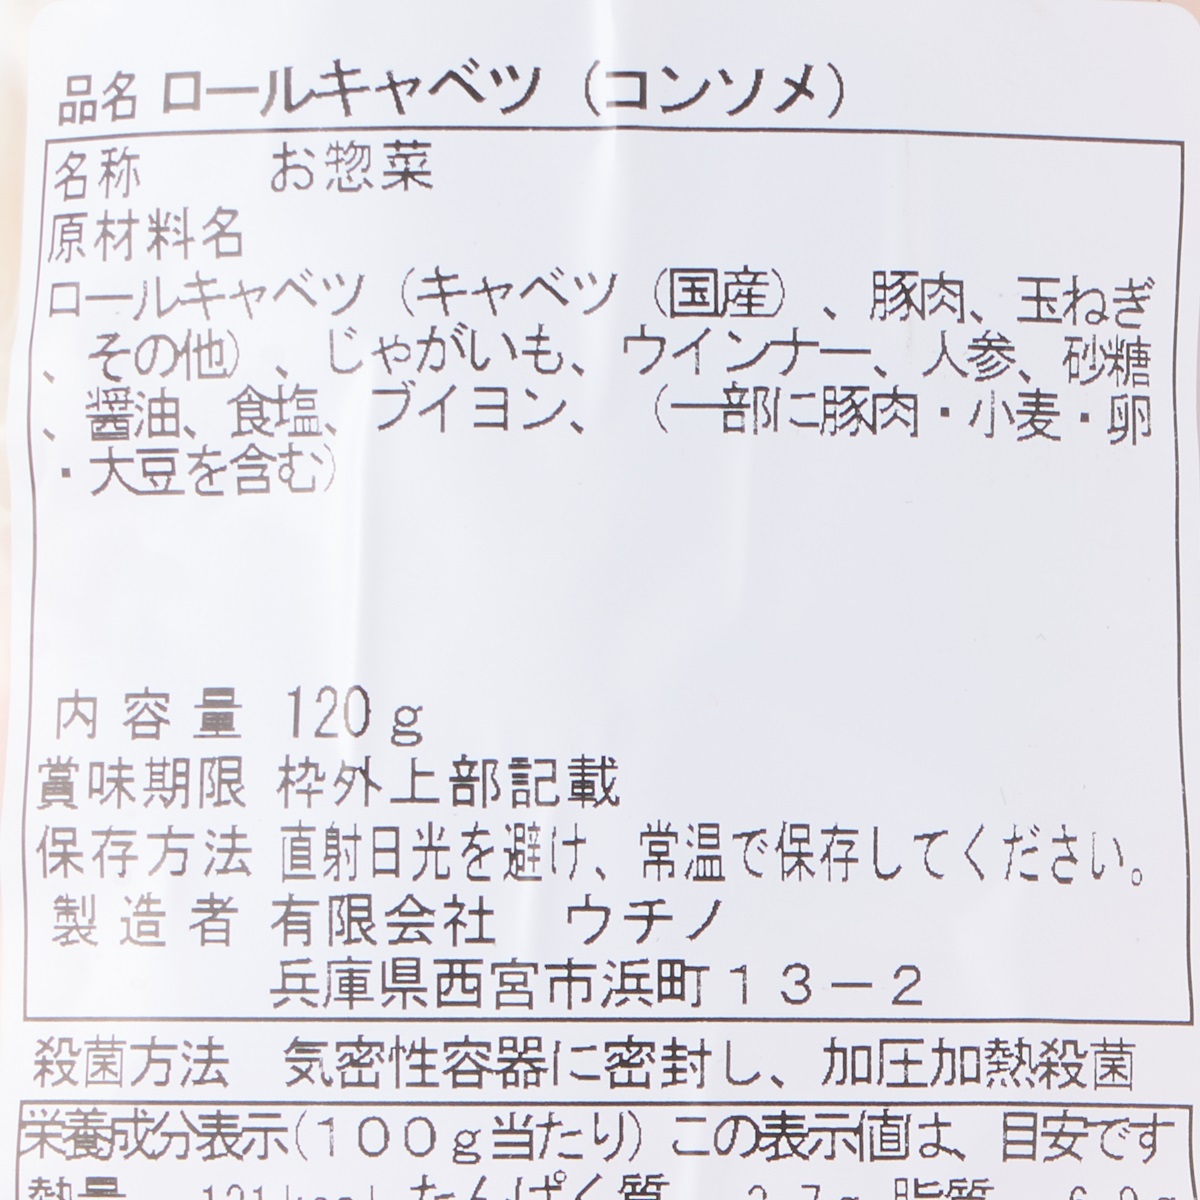 品名 ロールキャベツ（コンソメ）
名称　お惣菜
原材料名
ロールキャベツ（キャベツ（国産）、豚肉、玉ねぎ
、その他）、じゃがいも、ウインナー、人参、砂糖
、醤油、食塩、ブイヨン、（一部に豚肉・小麦・卵
・大豆を含む）
内容量 120g
賞味期限 枠外上部記載
保存方法 直射日光を避け、常温で保存してください。
製造者 有限会社　ウチノ
兵庫県西宮市浜町１３－２
殺菌方法　気密性容器に密封し、加圧加熱殺菌
栄養成分表示(１００ｇ当たり) この表示値は、目安です
熱量 121kcal たんぱく質 脂質